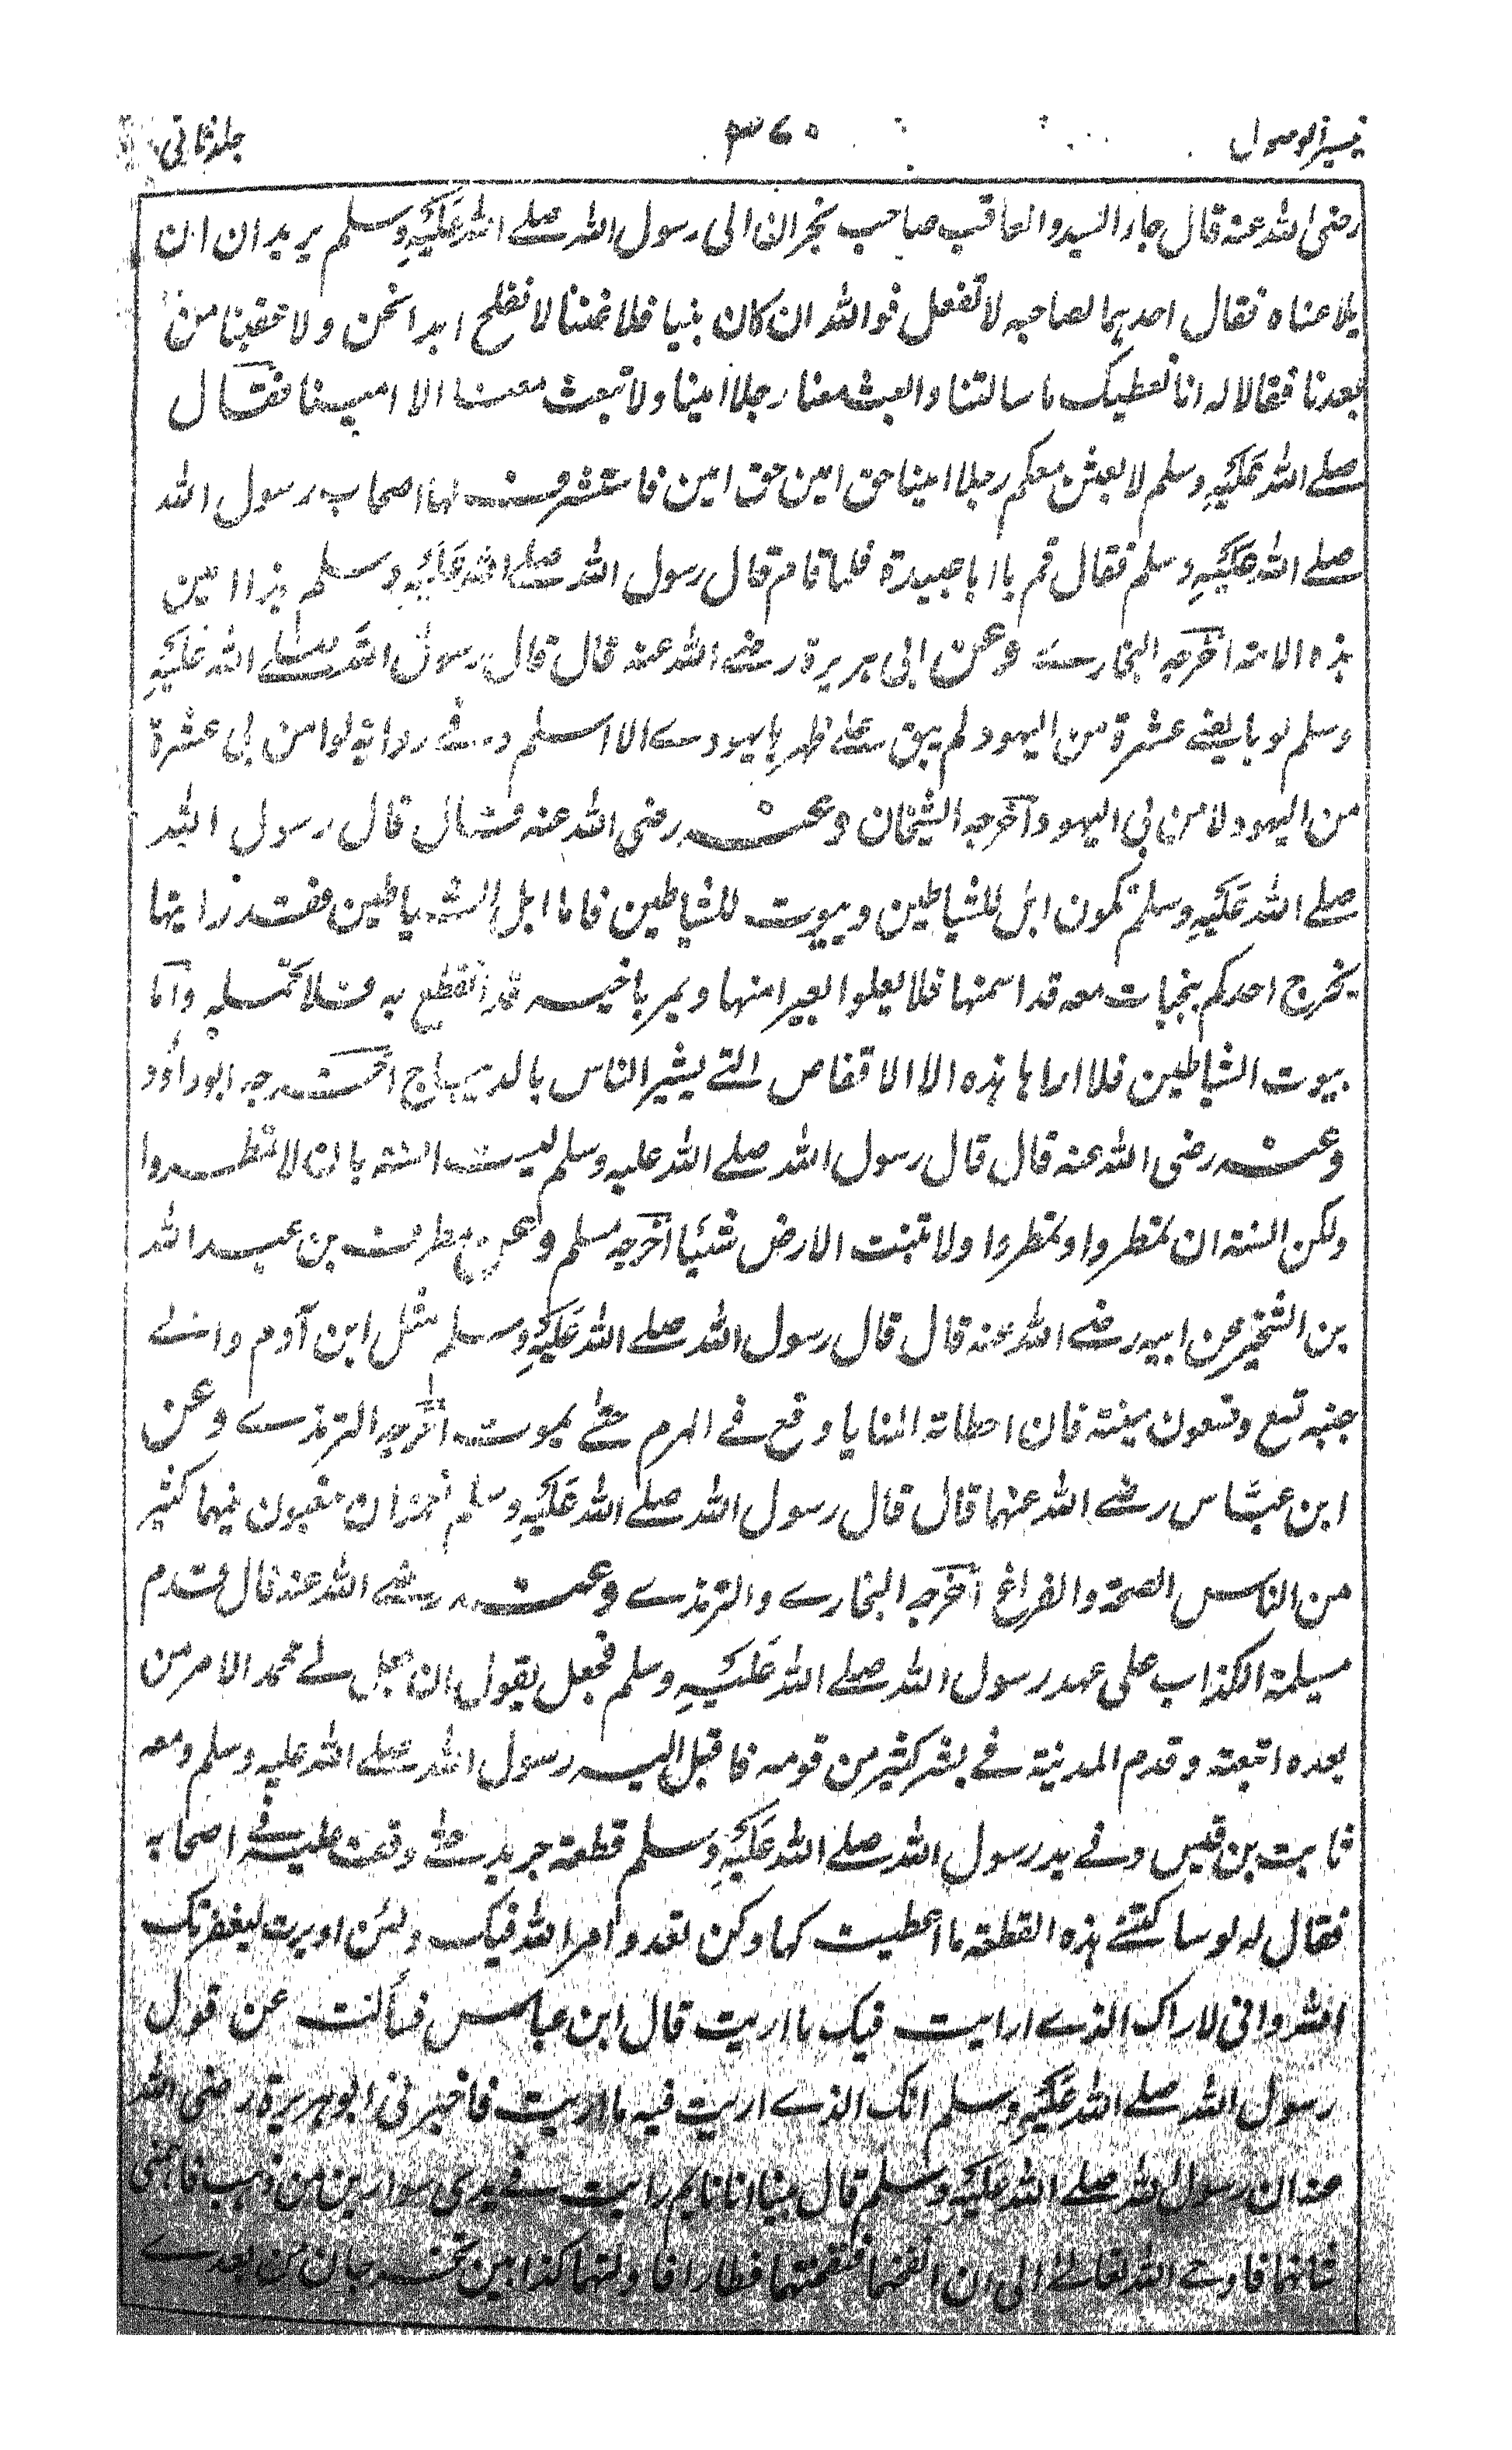 تيسير الوصول ٣٧٠ جلد ثانی
رضی الله عنه قال جاء السيد والعاقب صاحب نجران الى رسول الله صلے الله عَلَيْهِ وسلم يريدان ان
يلاعناه فقال احدهما لصاحبه لا تفعل فو الله ان كان نبيا فلاعننا لا نفلح ابدا نحن ولا عقبنا من
بعدنا فقالا له انا نعطيك ما سالتنا وابعث معنا رجلا امينا ولا تبعث معنا الا امينا فقال
صلے الله عَلَيْهِ وسلم لابعثن معكم رجلا امينا حق امين حق امين فاستشرف لها اصحاب رسول الله
صلے الله عَلَيْهِ وسلم فقال قم يا ابا عبيدة فلما قام قال رسول الله صلے الله عَلَيْهِ وسلم هذا امين
هذه الامة اخرجه البخارے وعن ابى هريرة رضے الله عنه قال قال رسول الله صلے الله عَلَيْهِ
وسلم لو بايعنے عشرة من اليهود لم يبق علے ظهرها يهودے الا اسلم وفے رواية لو امن بى عشرة
من اليهود لامن بى اليهود اخرجه الشيخان وعنه رضی الله عنه قال قال رسول الله
صلے الله عَلَيْهِ وسلم تكون ابل للشياطين وبيوت للشياطين فاما ابل الشياطين فقد رايتها
يخرج احدكم بنجيبات معه قد اسمنها فلا يعلو ابعيرا منها ويمر باخيه قد انقطع به فلا يحمله واما
بيوت الشياطين فلا اراها هذه الا الاقفاص التے يستر الناس بالديباج اخرجه ابو داؤد
وعنه رضی الله عنه قال قال رسول الله صلے الله عليه وسلم ليست السنة بان لا تمطروا
ولكن السنة ان تمطروا وتمطروا ولا تنبت الارض شيئا اخرجه مسلم وعن مطرف بن عبد الله
بن الشخير عن ابيه رضے الله عنه قال قال رسول الله صلے الله عَلَيْهِ وسلم مثل ابن آدم والے
جنبه تسع وتسعون ميتة فان اخطاته المنايا وقع فے الهرم حتے يموت اخرجه الترمذے وعن
ابن عبّاس رضے الله عنهما قال قال رسول الله صلے الله عَلَيْهِ وسلم نعمتان مغبون فيهما كثير
من الناس الصحة والفراغ اخرجه البخارے والترمذے وعنه رضے الله عنه قال قدم
مسيلمة الكذاب على عهد رسول الله صلے الله عَلَيْهِ وسلم فجعل يقول ان جعل لے محمد الامر من
بعده اتبعته وقدم المدينة فے بشر كثير من قومه فاقبل اليه رسول الله صلے الله عليه وسلم ومعه
ثابت بن قيس وفے يد رسول الله صلے الله عَلَيْهِ وسلم قطعة جريد حتے وقف عليه فے اصحابه
فقال له لو سالتنے هذه القطعة ما اعطيتكها ولن تعدو امر الله فيك ولئن ادبرت ليعقرنك
الله وانى لاراك الذے اريت فيك ما اريت قال ابن عباس فسألت عن قول
رسول الله صلے الله عَلَيْهِ وسلم انك الذے اريت فيه ما اريت فاخبرنى ابو هريرة رضى الله
عنه ان رسول الله صلے الله عَلَيْهِ وسلم قال بينا انا نايم رايت فے يدى سوارين من ذهب فاهمنى
شانهما فاوحے الله تعالے الى ان انفخهما فنفختهما فطارا فاولتهما كذابين يخرجان من بعدے